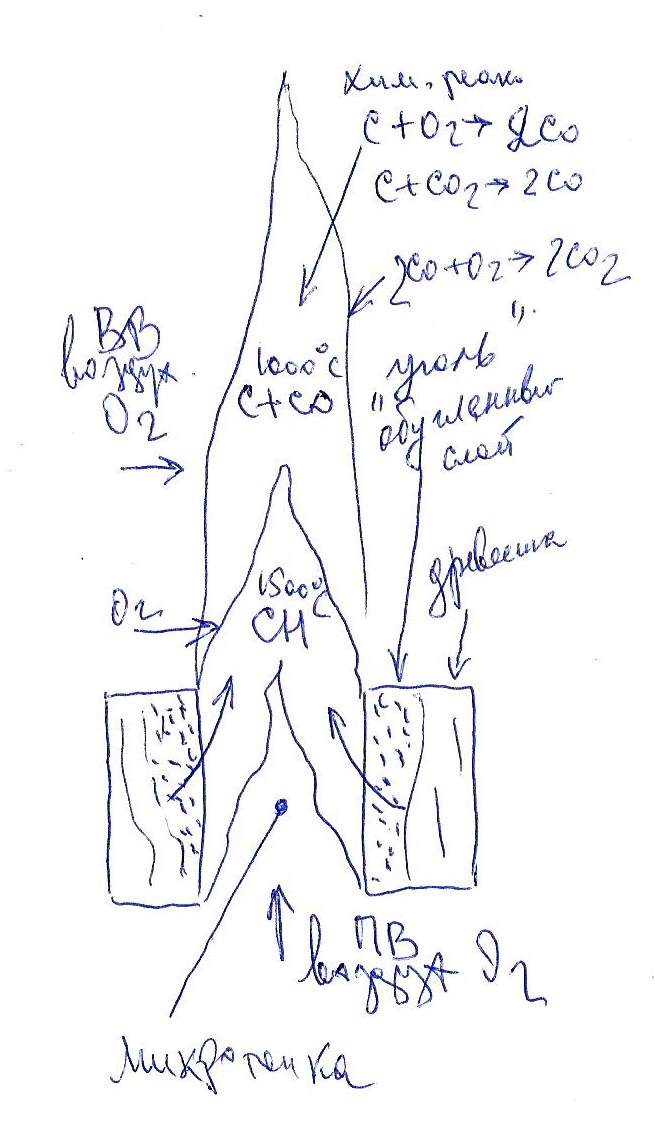 хим. реак.
C + O2 → 2CO
C + CO2 → 2CO
2CO + O2 → 2CO2
ВВ
воздух
O2
1000°C
C + CO
"уголь"
обугленный
слой
O2
1500°C
CH
древесина
ПВ
воздух O2
Микротопка